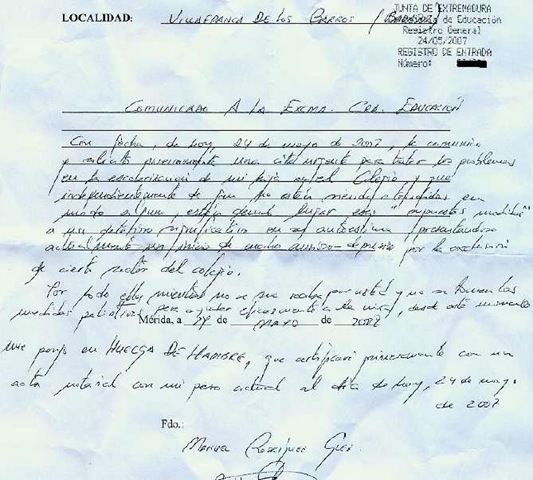 LOCALIDAD: VILLAFRANCA DE LOS BARROS / (BADAJOZ)
JUNTA DE EXTREMADURA
de Educación
Registro General
24/05/2007
REGISTRO DE ENTRADA
Número:
COMUNICADO A LA EXCMA. CRA. EDUCACIÓN
Con fecha, de hoy, 24 de mayo de 2007, le comunico
y solicito nuevamente una cita urgente para tratar los problemas
en la escolarización de mi hija en el Colegio y que
independientemente de que no están siendo en
modo alguno, estas "supuestas medidas"
a un deterioro significativo en su autoestima presentando
actualmente un inicio de cuadro ansioso-depresivo por la exclusión
de cierto sector del colegio.
Por todo ello, mientras no se me reciba por usted y no se tomen las
medidas para ayudar eficazmente a la niña, desde este momento
Mérida, a 24 de MAYO de 2007
me pongo en HUELGA DE HAMBRE, que certificaré primeramente con un
acta notarial con mi peso actual al día de hoy, 24 de mayo
de 2007
Fdo.:
Manuel Rodríguez